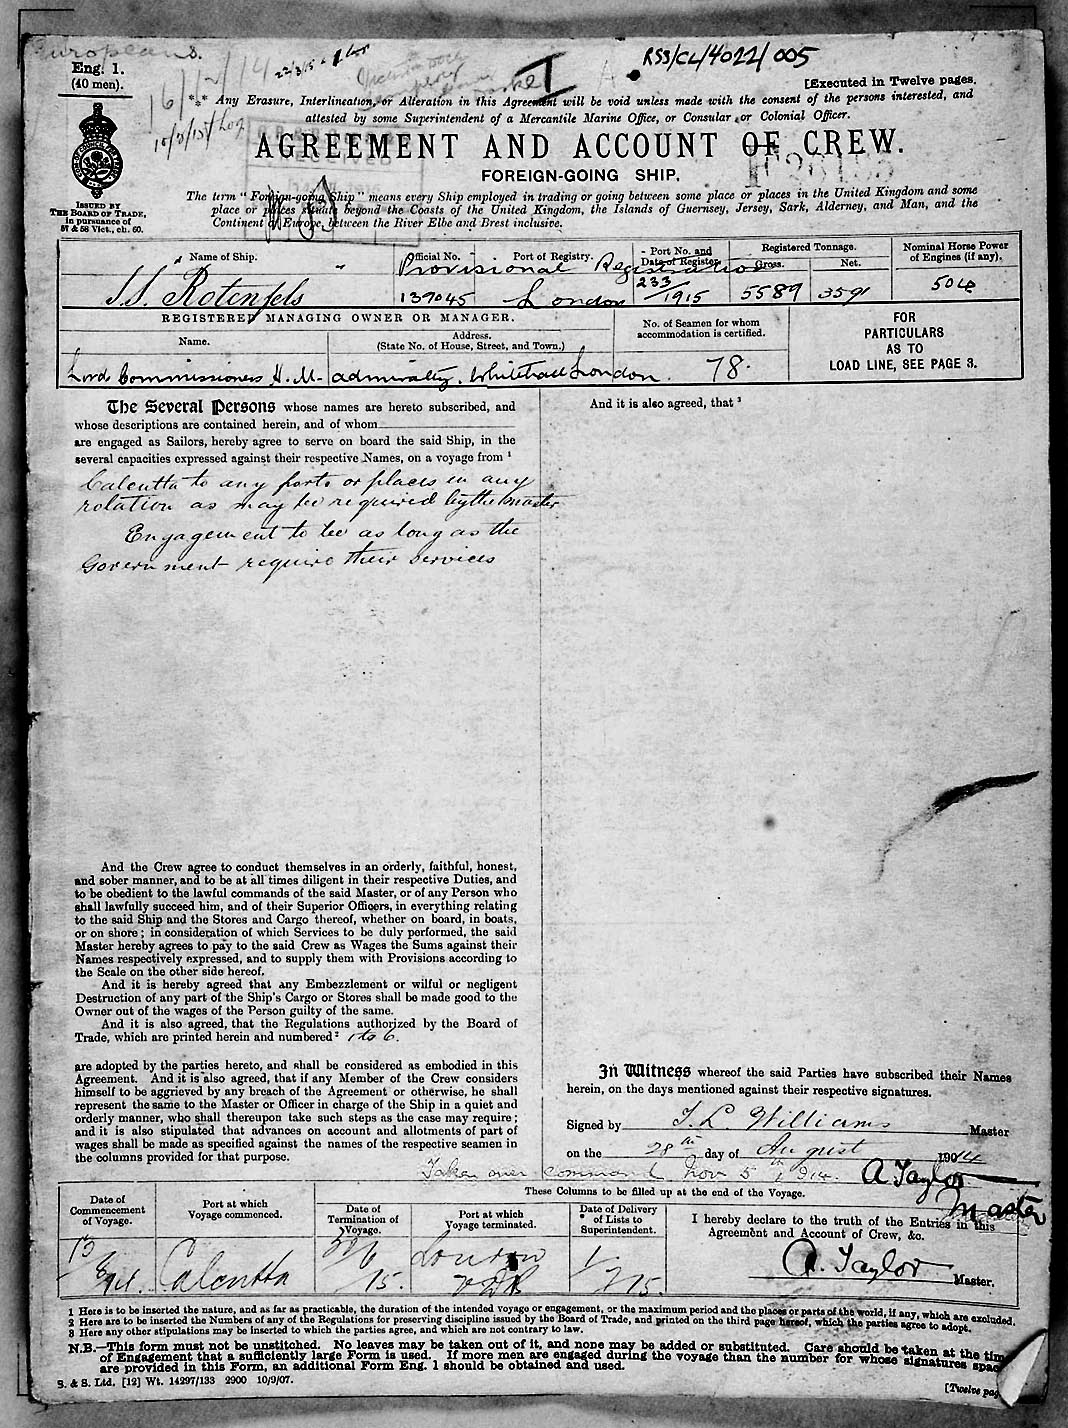 Europeans.
Eng. 1.
(40 men).
16/12/14
22/3/15
RSS/CL/4022/005
[Executed in Twelve pages.
*** Any Erasure, Interlineation, or Alteration in this Agreement will be void unless made with the consent of the persons interested, and
attested by some Superintendent of a Mercantile Marine Office, or Consular or Colonial Officer.
AGREEMENT AND ACCOUNT OF CREW.
FOREIGN-GOING SHIP.
ISSUED BY
THE BOARD OF TRADE,
in pursuance of
57 & 58 Vict., ch. 60.
The term "Foreign-going Ship" means every Ship employed in trading or going between some place or places in the United Kingdom and some
place or places situate beyond the Coasts of the United Kingdom, the Islands of Guernsey, Jersey, Sark, Alderney, and Man, and the
Continent of Europe, between the River Elbe and Brest inclusive.
Name of Ship.
Official No.
Port of Registry.
Port No. and
Date of Register.
Registered Tonnage.
Gross.
Net.
Nominal Horse Power
of Engines (if any).
Provisional Registration
S.S. Rotenfels
139045
London
233/1915
5589
3591
504
REGISTERED MANAGING OWNER OR MANAGER.
Name.
Address.
(State No. of House, Street, and Town.)
No. of Seamen for whom
accommodation is certified.
FOR
PARTICULARS
AS TO
LOAD LINE, SEE PAGE 3.
Lord Commissioners H. M. Admiralty. Whitehall London.
78.
The Several Persons whose names are hereto subscribed, and
whose descriptions are contained herein, and of whom
are engaged as Sailors, hereby agree to serve on board the said Ship, in the
several capacities expressed against their respective Names, on a voyage from 1
Calcutta to any ports or places in any
rotation as may be required by the master
Engagement to be as long as the
Government require their services
And it is also agreed, that 3
And the Crew agree to conduct themselves in an orderly, faithful, honest,
and sober manner, and to be at all times diligent in their respective Duties, and
to be obedient to the lawful commands of the said Master, or of any Person who
shall lawfully succeed him, and of their Superior Officers, in everything relating
to the said Ship and the Stores and Cargo thereof, whether on board, in boats,
or on shore; in consideration of which Services to be duly performed, the said
Master hereby agrees to pay to the said Crew as Wages the Sums against their
Names respectively expressed, and to supply them with Provisions according to
the Scale on the other side hereof.
And it is hereby agreed that any Embezzlement or wilful or negligent
Destruction of any part of the Ship's Cargo or Stores shall be made good to the
Owner out of the wages of the Person guilty of the same.
And it is also agreed, that the Regulations authorized by the Board of
Trade, which are printed herein and numbered 2 1 to 6.
are adopted by the parties hereto, and shall be considered as embodied in this
Agreement. And it is also agreed, that if any Member of the Crew considers
himself to be aggrieved by any breach of the Agreement or otherwise, he shall
represent the same to the Master or Officer in charge of the Ship in a quiet and
orderly manner, who shall thereupon take such steps as the case may require;
and it is also stipulated that advances on account and allotments of part of
wages shall be made as specified against the names of the respective seamen in
the columns provided for that purpose.
In Witness whereof the said Parties have subscribed their Names
herein, on the days mentioned against their respective signatures.
Signed by J. L. Williams Master
on the 28th day of August 1914
Taken over command Nov 5th 1914. A Taylor
Master
Date of
Commencement
of Voyage.
Port at which
Voyage commenced.
These Columns to be filled up at the end of the Voyage.
Date of
Termination of
Voyage.
Port at which
Voyage terminated.
Date of Delivery
of Lists to
Superintendent.
I hereby declare to the truth of the Entries in this
Agreement and Account of Crew, &c.
Calcutta
30/6/15.
London
1/7/15.
A. Taylor Master.
1 Here is to be inserted the nature, and as far as practicable, the duration of the intended voyage or engagement, or the maximum period and the places or parts of the world, if any, which are excluded.
2 Here are to be inserted the Numbers of any of the Regulations for preserving discipline issued by the Board of Trade, and printed on the third page hereof, which the parties agree to adopt.
3 Here any other stipulations may be inserted to which the parties agree, and which are not contrary to law.
N.B.—This form must not be unstitched. No leaves may be taken out of it, and none may be added or substituted. Care should be taken at the tim
of Engagement that a sufficiently large Form is used. If more men are engaged during the voyage than the number for whose signatures spac
are provided in this Form, an additional Form Eng. 1 should be obtained and used.
S. & S. Ltd. [12] Wt. 14297/133 2900 10/9/07.
[Twelve pag